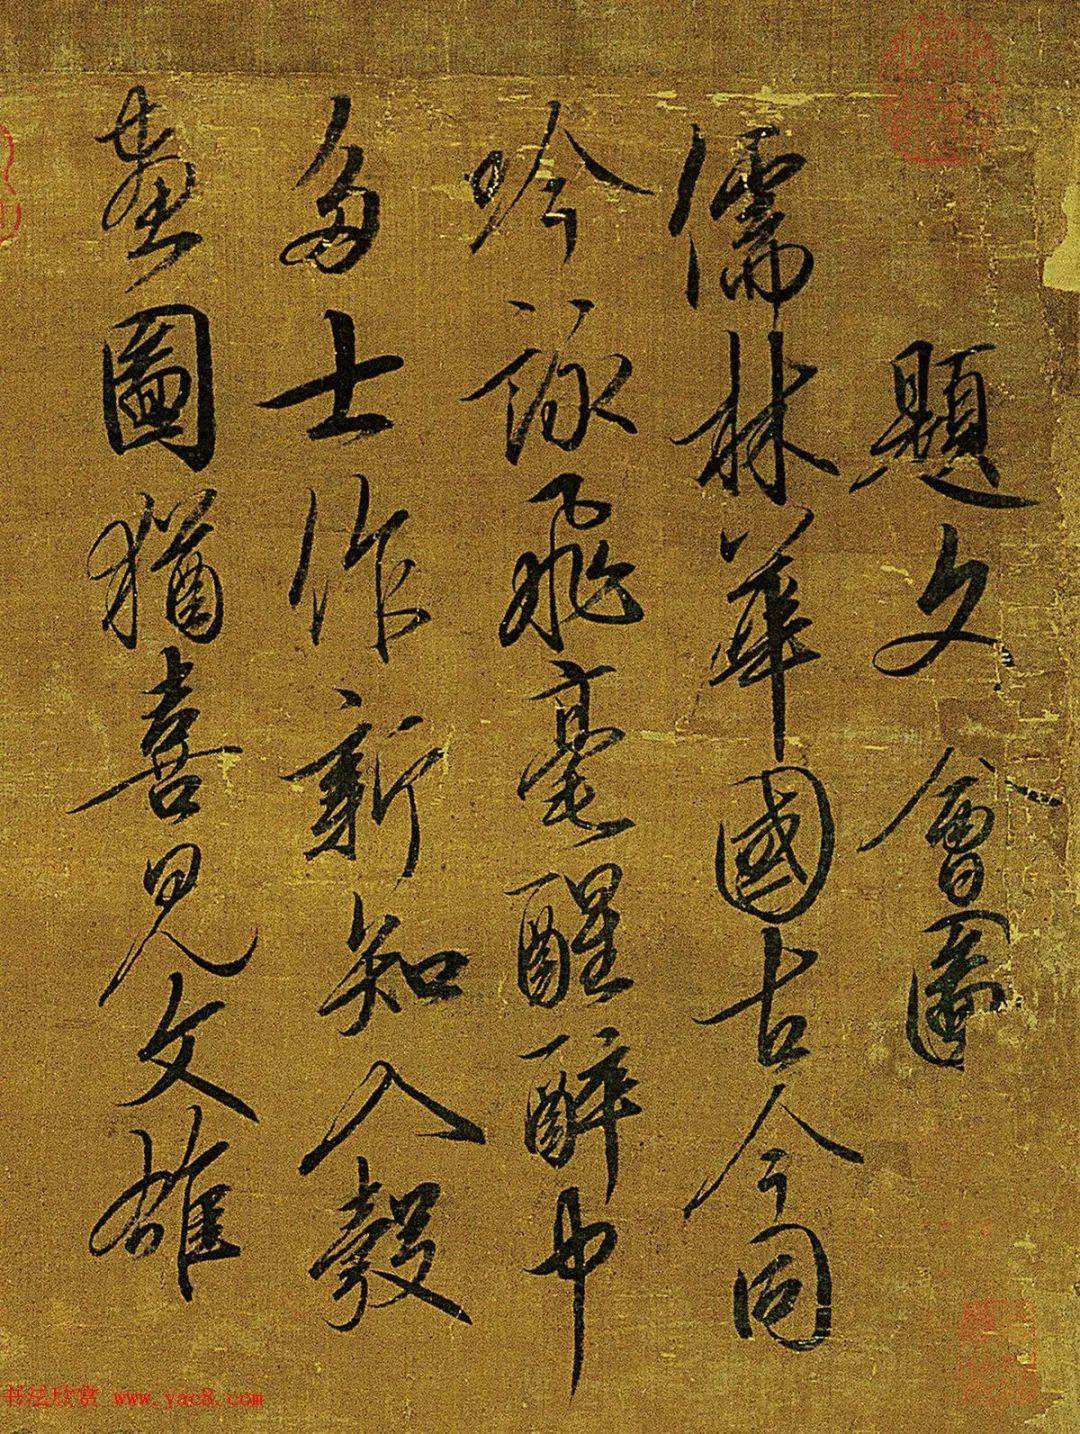 題文會圖
儒林華國古今同
吟詠飛毫醒醉中
多士作新知入彀
畫圖猶喜見文雄
书法欣赏 www.yac8.com